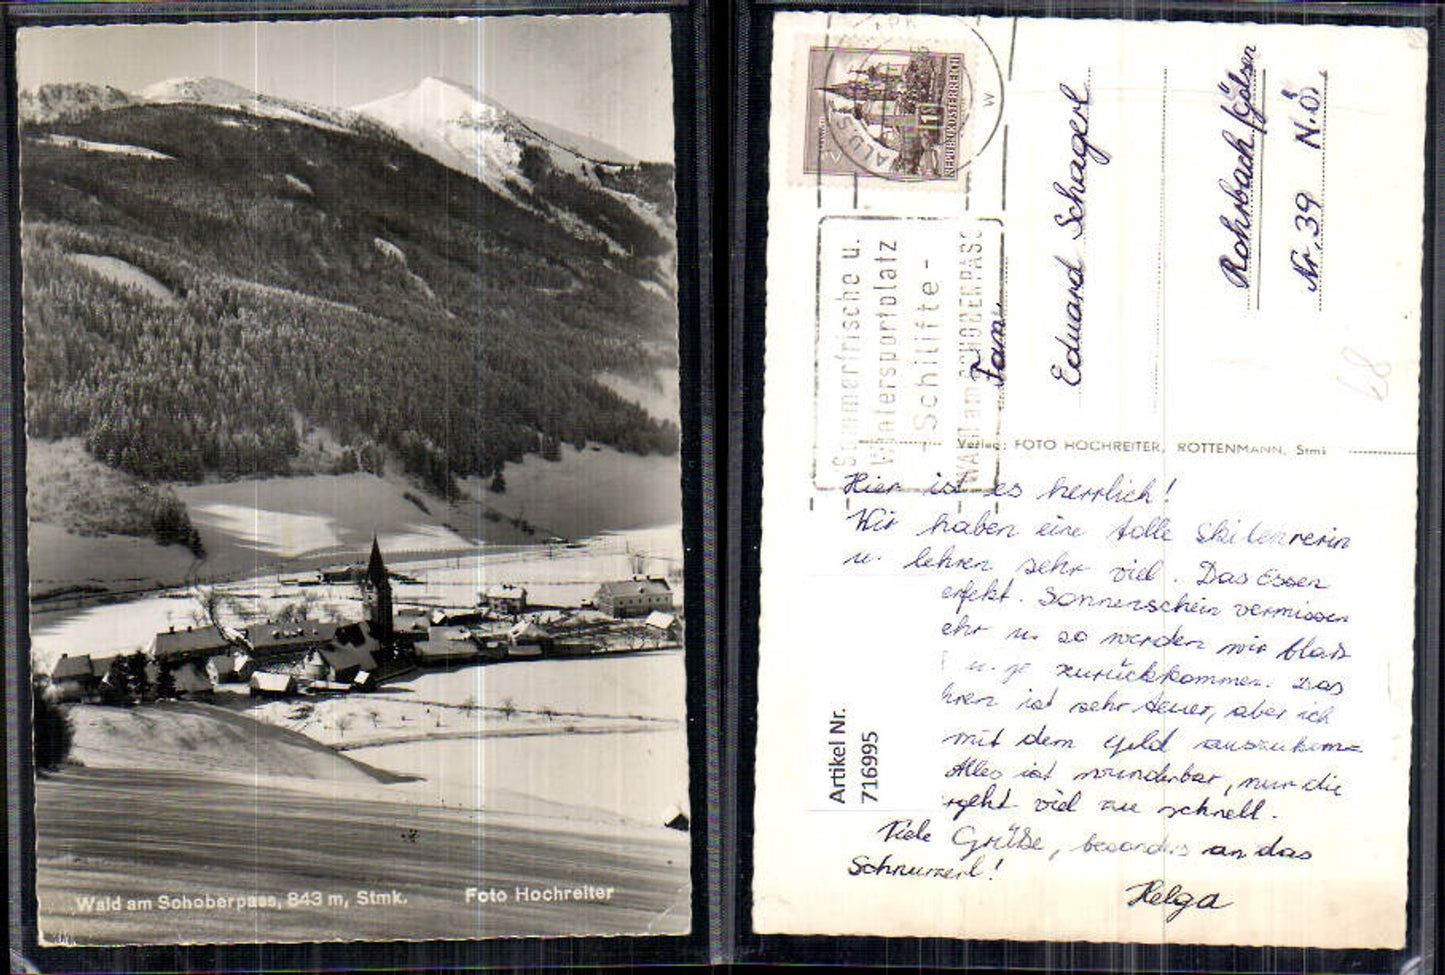 Wald am Schoberpass, 843 m, Stmk.
Foto Hochreiter
REPUBLIK ÖSTERREICH
Sommerfrische u.
Wintersportplatz
- Schilifte -
WALD am SCHOBERPASS
Fam.
Eduard Schagerl
Rohrbach/Gölsen
Nr. 39 N.Ö.
68
Verlag: FOTO HOCHREITER, ROTTENMANN, Stmk
Artikel Nr.
716995
Hier ist es herrlich!
Wir haben eine tolle Skilehrerin
u. lehren sehr viel. Das Essen
erfekt. Sonnenschein vermissen
ehr u. so werden wir blaß
u. zurückkommen. Das
hren ist sehr teuer, aber ich
mit dem Geld auszukom=
Alles ist wunderbar, nur die
rgeht viel zu schnell.
Viele Grüße, besonders an das
Schnurzerl!
Helga